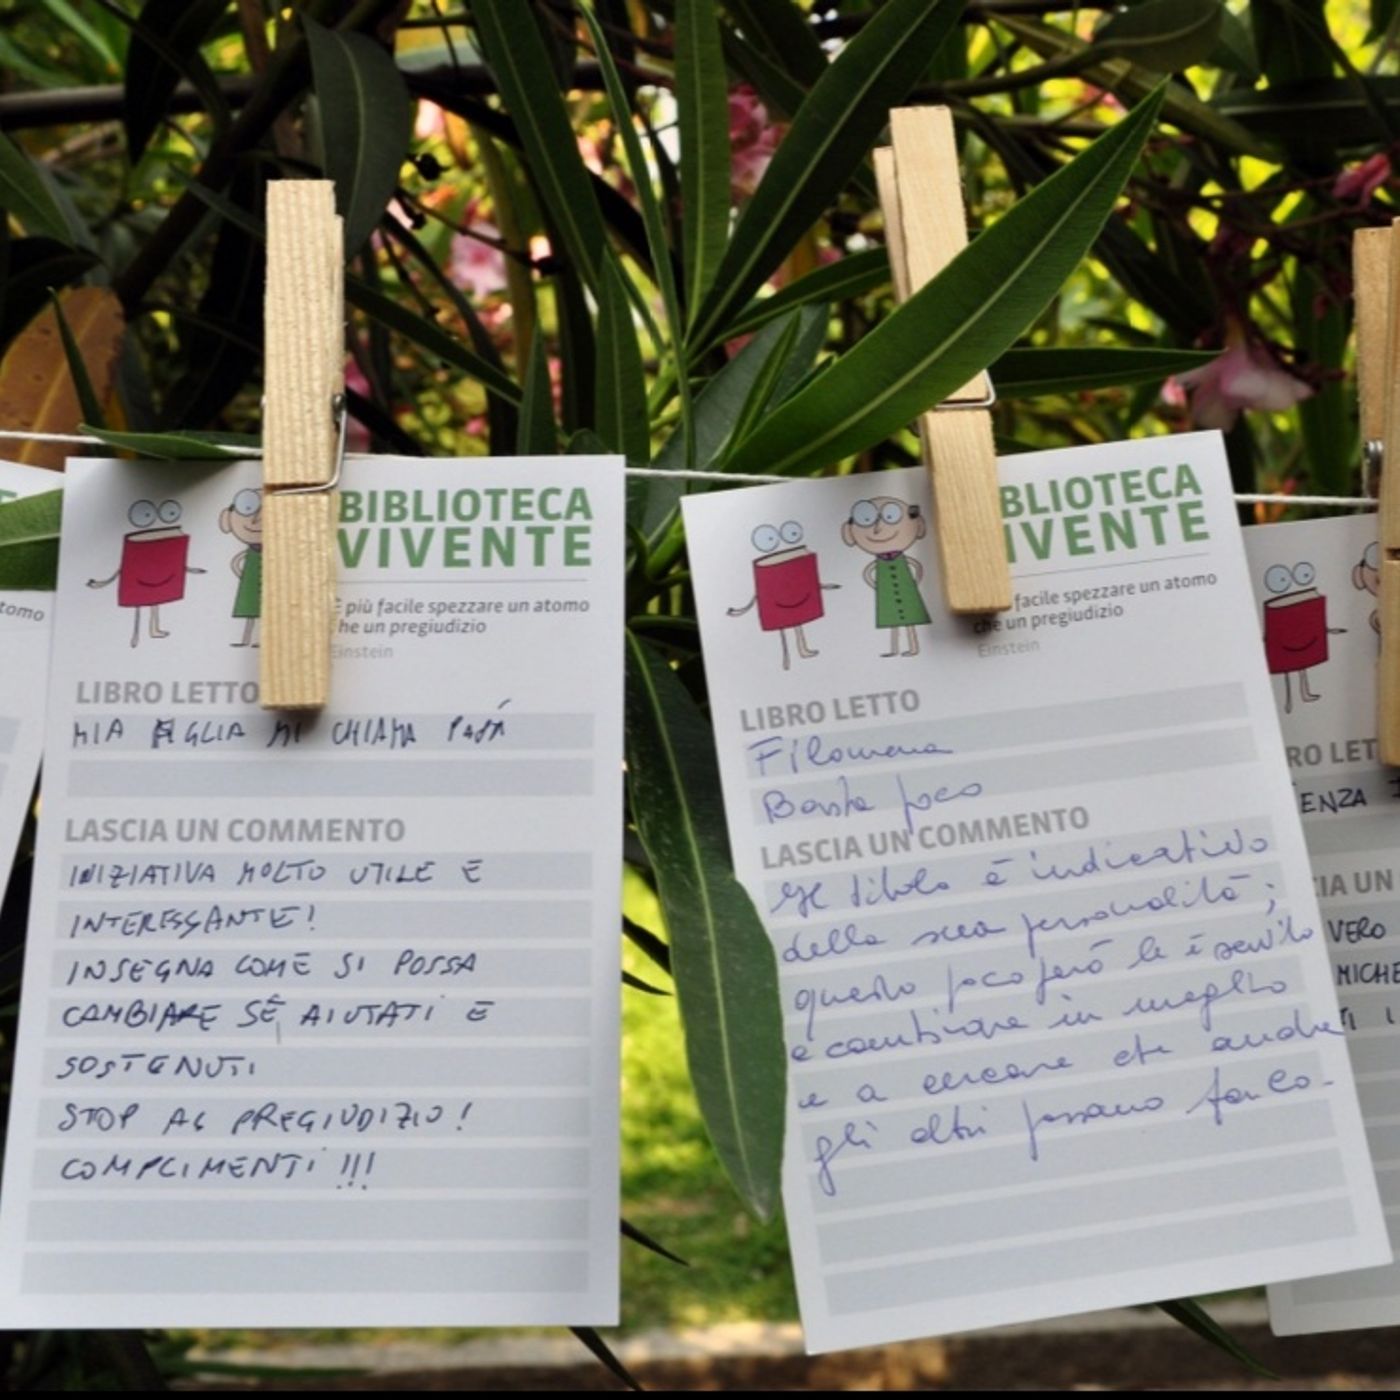 tomo
BIBLIOTECA
VIVENTE
È più facile spezzare un atomo
he un pregiudizio
Einstein
LIBRO LETTO
MIA FIGLIA MI CHIAMA PAPÀ
LASCIA UN COMMENTO
INIZIATIVA MOLTO UTILE E
INTERESSANTE!
INSEGNA COME SI POSSA
CAMBIARE SE AIUTATI E
SOSTENUTI
STOP AL PREGIUDIZIO!
COMPLIMENTI!!!
BLIOTECA
IVENTE
facile spezzare un atomo
che un pregiudizio
Einstein
LIBRO LETTO
Filomena
Basta poco
LASCIA UN COMMENTO
Il titolo è indicativo
della sua personalità;
questo poco però le è servito
a cambiare in meglio
e a cercare che anche
gli altri possano farlo.
RO LET
ENZA
IA UN
VERO
MICHE
TI I